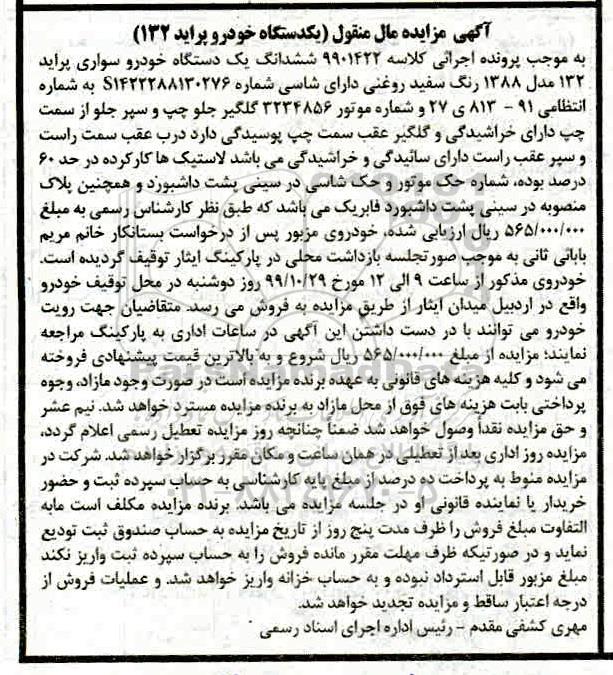 آگهی مزایده مال منقول (یکدستگاه خودرو پراید ۱۳۲)
به موجب پرونده اجرائی کلاسه ۹۹۰۱۴۲۲ ششدانگ یک دستگاه خودرو سواری پراید
۱۳۲ مدل ۱۳۸۸ رنگ سفید روغنی دارای شاسی شماره S۱۴۲۲۲۸۸۱۳۰۲۷۶ به شماره
انتظامی ۹۱ - ۸۱۳ ی ۲۷ و شماره موتور ۳۲۳۴۸۵۶ گلگیر جلو چپ و سپر جلو از سمت
چپ دارای خراشیدگی و گلگیر عقب سمت چپ پوسیدگی دارد درب عقب سمت راست
و سپر عقب راست دارای سائیدگی و خراشیدگی می باشد لاستیک ها کارکرده در حد ۶۰
درصد بوده، شماره حک موتور و حک شاسی در سینی پشت داشبورد و همچنین پلاک
منصوبه در سینی پشت داشبورد فابریک می باشد که طبق نظر کارشناس رسمی به مبلغ
۵۶۵/۰۰۰/۰۰۰ ریال ارزیابی شده، خودروی مزبور پس از درخواست بستانکار خانم مریم
بابائی ثانی به موجب صورتجلسه بازداشت محلی در پارکینگ ایثار توقیف گردیده است.
خودروی مذکور از ساعت ۹ الی ۱۲ مورخ ۹۹/۱۰/۲۹ روز دوشنبه در محل توقیف خودرو
واقع در اردبیل میدان ایثار از طریق مزایده به فروش می رسد. متقاضیان جهت رویت
خودرو می توانند با در دست داشتن این آگهی در ساعات اداری به پارکینگ مراجعه
نمایند؛ مزایده از مبلغ ۵۶۵/۰۰۰/۰۰۰ ریال شروع و به بالاترین قیمت پیشنهادی فروخته
می شود و کلیه هزینه های قانونی به عهده برنده مزایده است در صورت وجود مازاد، وجوه
پرداختی بابت هزینه های فوق از محل مازاد به برنده مزایده مسترد خواهد شد. نیم عشر
و حق مزایده نقداً وصول خواهد شد ضمناً چنانچه روز مزایده تعطیل رسمی اعلام گردد،
مزایده روز اداری بعد از تعطیلی در همان ساعت و مکان مقرر برگزار خواهد شد. شرکت در
مزایده منوط به پرداخت ده درصد از مبلغ پایه کارشناسی به حساب سپرده ثبت و حضور
خریدار یا نماینده قانونی او در جلسه مزایده می باشد. برنده مزایده مکلف است مابه
التفاوت مبلغ فروش را ظرف مدت پنج روز از تاریخ مزایده به حساب صندوق ثبت تودیع
نماید و در صورتیکه ظرف مهلت مقرر مانده فروش را به حساب سپرده ثبت واریز نکند
مبلغ مزبور قابل استرداد نبوده و به حساب خزانه واریز خواهد شد. و عملیات فروش از
درجه اعتبار ساقط و مزایده تجدید خواهد شد.
مهری کشفی مقدم - رئیس اداره اجرای اسناد رسمی
ParsNamadData
۰۲۱-۸۸۳۴۹۶۷۰-۵